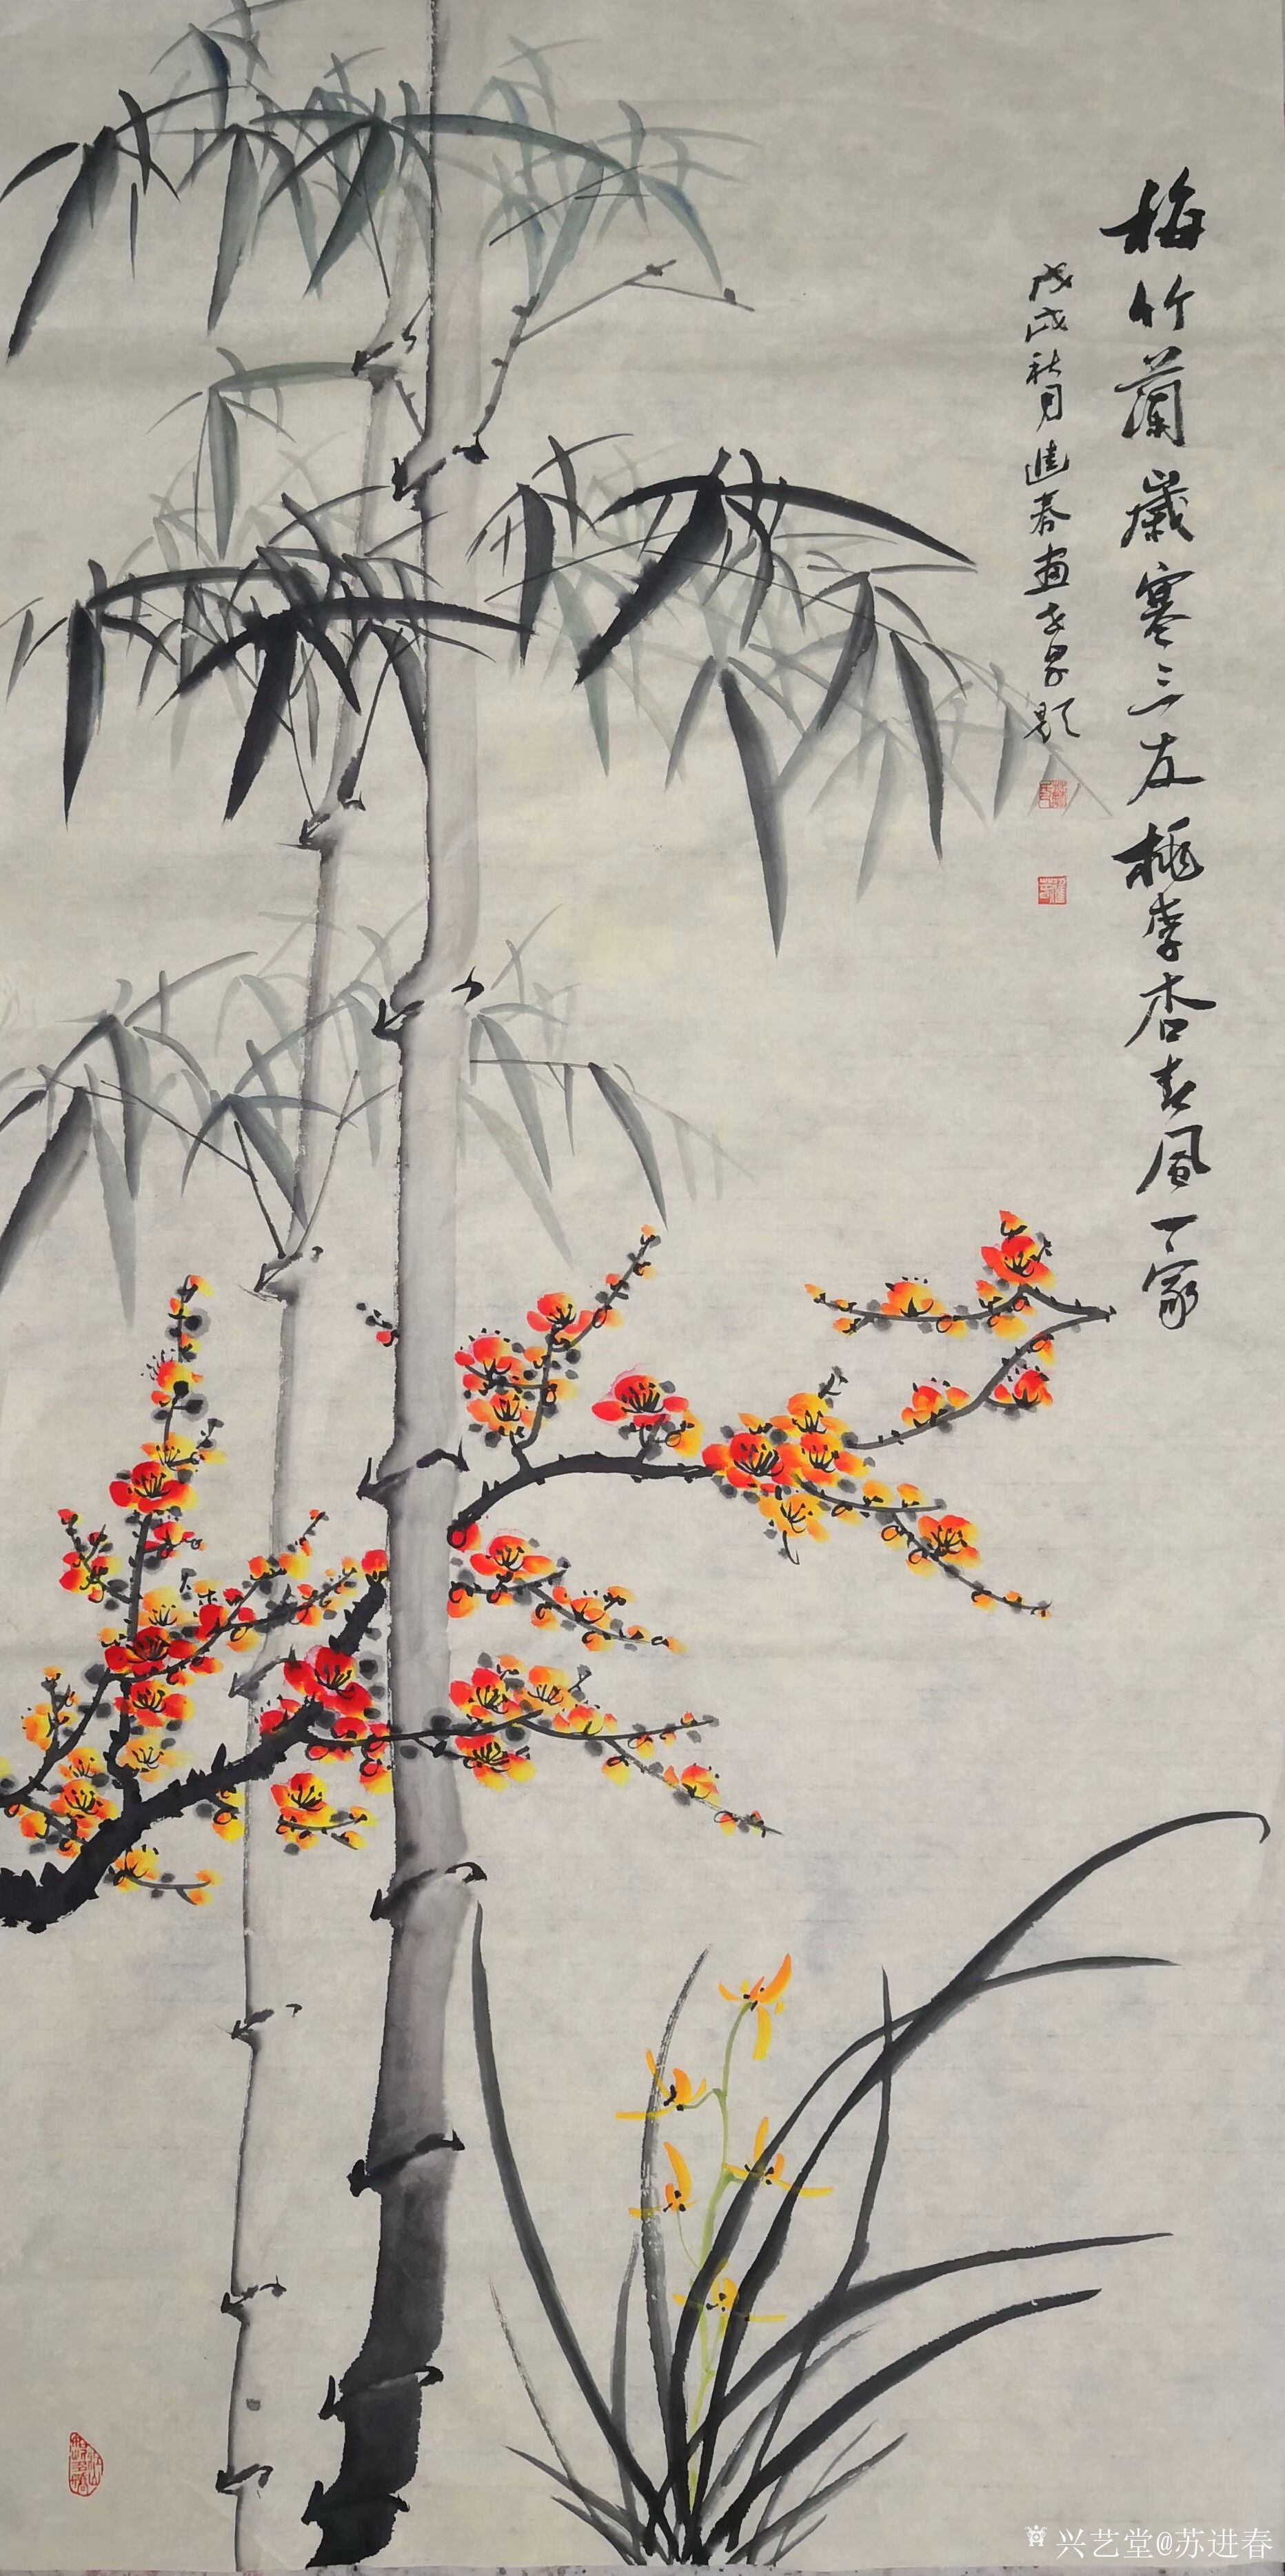 梅竹蘭歲寒三友桃李杏春風一家
戊戌秋月進春畫
兴艺堂@苏进春